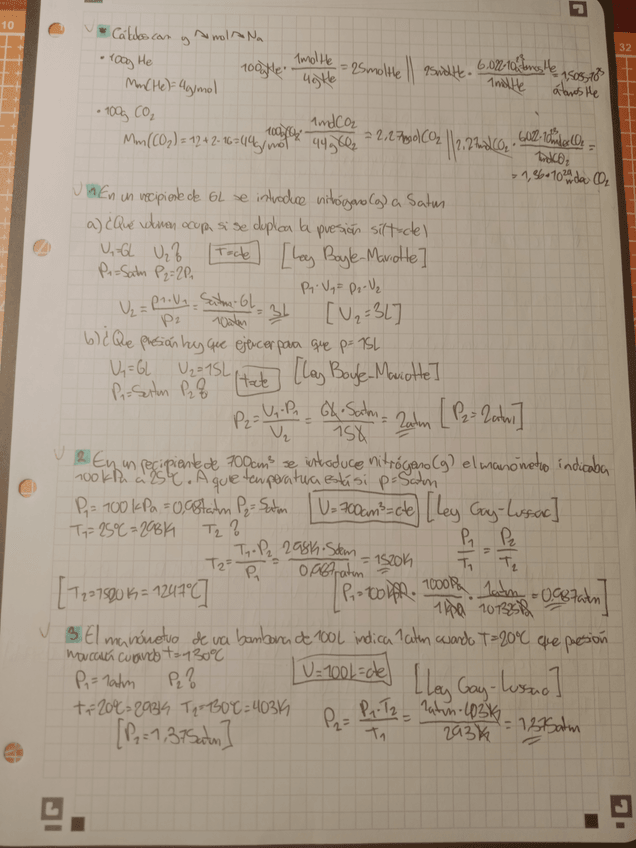 Cálculos con g ~ mol ~ Na
• 100g He
100g He · 1mol He / 4g He = 25mol He || 25mol He · 6.022·10²³ átomos He / 1mol He = 1,505·10²⁵ átomos He
Mm(He)=4g/mol
• 100g CO₂
Mm(CO₂)=12+2·16=44g/mol
100g CO₂ · 1mol CO₂ / 44g CO₂ = 2,27mol CO₂ || 2,27mol CO₂ · 6.022·10²³ CO₂ / 1mol CO₂ =
= 1,36·10²⁴ CO₂
1 En un recipiente de 6L se introduce nitrógeno(g) a 5atm
a) ¿Que volumen ocupa si se duplica la presión si (T=cte)
V₁=6L V₂? T=cte [Ley Boyle-Mariotte]
P₁=5atm P₂=2P₁
P₁·V₁=P₂·V₂
V₂ = P₁·V₁ / P₂ = 5atm·6L / 10atm = 3L [V₂=3L]
b) ¿Que presión hay que ejercer para que p=15L
V₁=6L V₂=15L t=cte [Ley Boyle-Mariotte]
P₁=5atm P₂?
P₂ = V₁·P₁ / V₂ = 6L·5atm / 15L = 2atm [P₂=2atm]
2 En un recipiente de 700cm³ se introduce nitrógeno(g) el manómetro indicaba
100kPa a 25ºC. A que temperatura está si p=5atm
P₁=100kPa=0,987atm P₂=5atm V=700cm³=cte [Ley Gay-Lussac]
T₁=25ºC=298K T₂?
P₁/T₁ = P₂/T₂
T₂ = T₁·P₂ / P₁ = 298K·5atm / 0,987atm = 1520K
[T₂=1520K=1247ºC] [P₁=100kPa · 1000Pa / 1kPa · 1atm / 101325Pa = 0,987atm]
3 El manómetro de una bombona de 100L indica 1atm cuando T=20ºC que presión
marcará cuando t=130ºC
P₁=1atm P₂? V=100L=cte [Ley Gay-Lussac]
t₁=20ºC=293K T₂=130ºC=403K
P₂ = P₁·T₂ / T₁ = 1atm·403K / 293K = 1,375atm
[P₂=1,375atm]